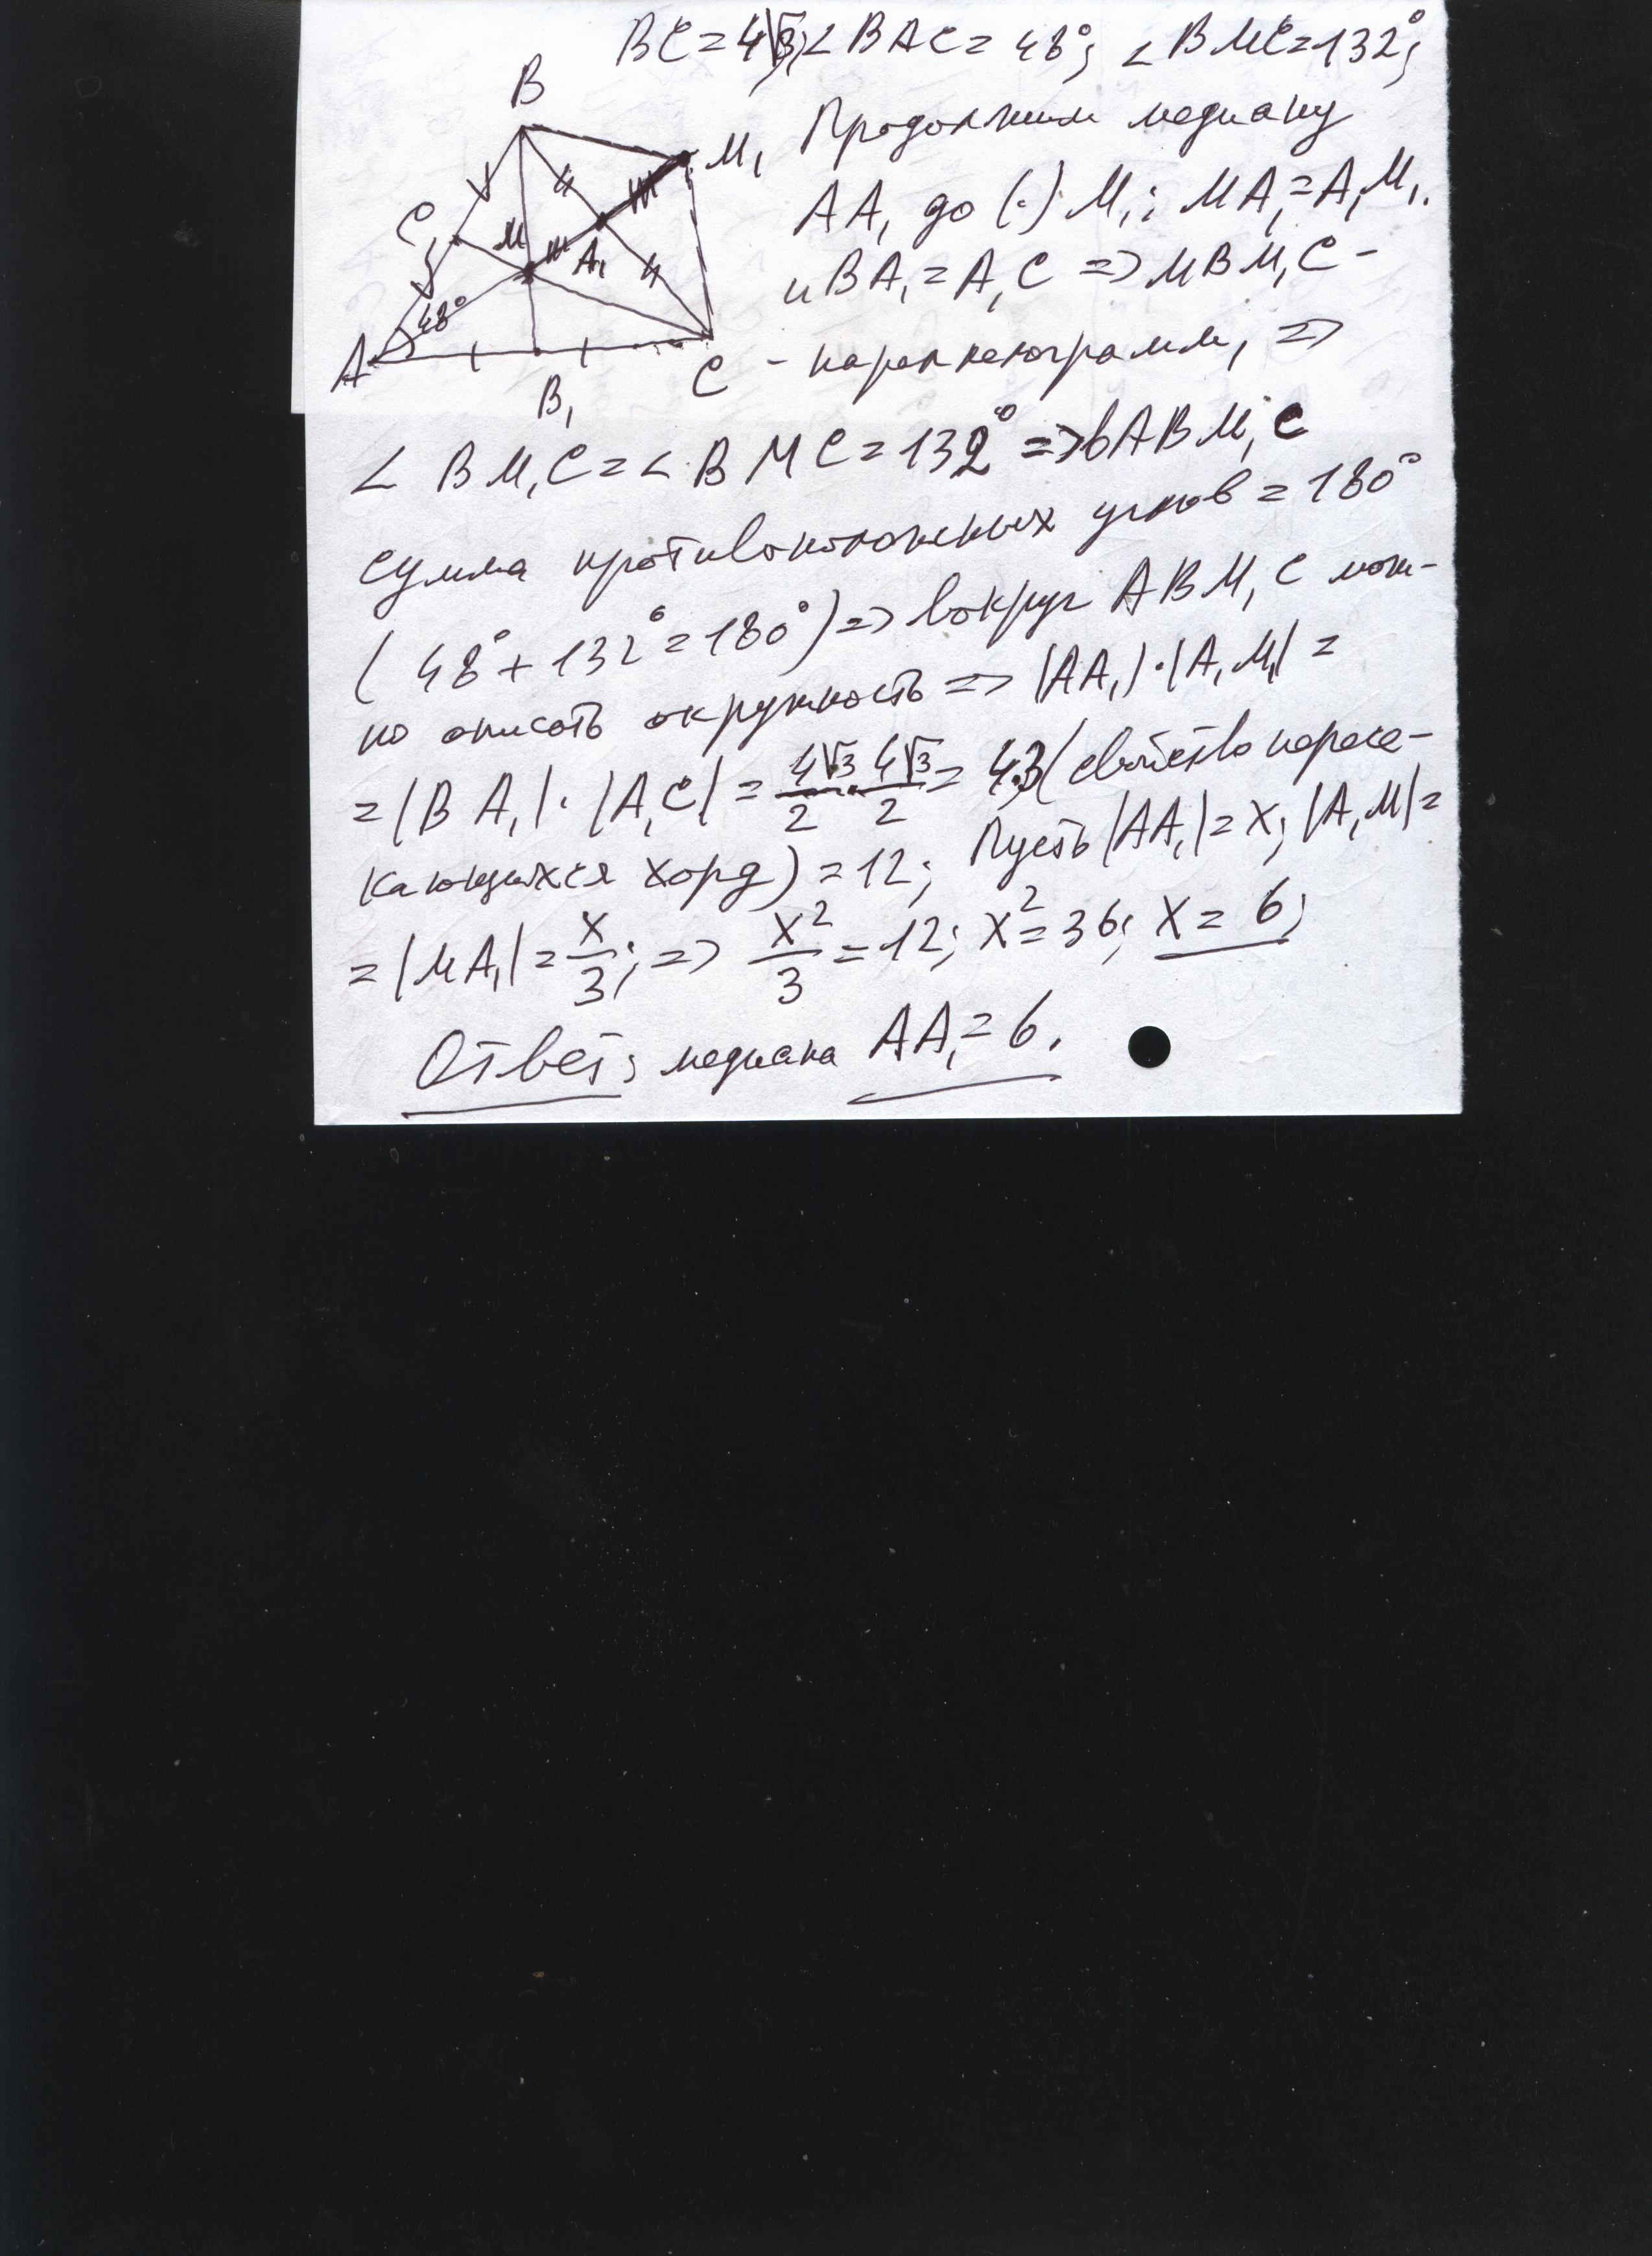 BC=4√3; ∠BAC=48°; ∠BMC=132°;
B
M₁
Продолжим медиану
C₁
M
A₁
AA₁ до (·) M₁; MA₁=A₁M₁.
и BA₁=A₁C => MBM₁C -
48°
A
B₁
C
- параллелограмм, =>
∠ BM₁C=∠BMC=132° => в ABM₁C
сумма противоположных углов = 180°
(48°+132°=180°) => вокруг ABM₁C мож-
но описать окружность => |AA₁|·|A₁M₁| =
=|BA₁|·|A₁C| = 4√3/2 · 4√3/2 = 4·3 (свойство пересе-
кающихся хорд) = 12; Пусть |AA₁|=x; |A₁M|=
=|MA₁|=x/3; => x²/3 = 12; x²=36; x=6;
Ответ; медиана AA₁=6.